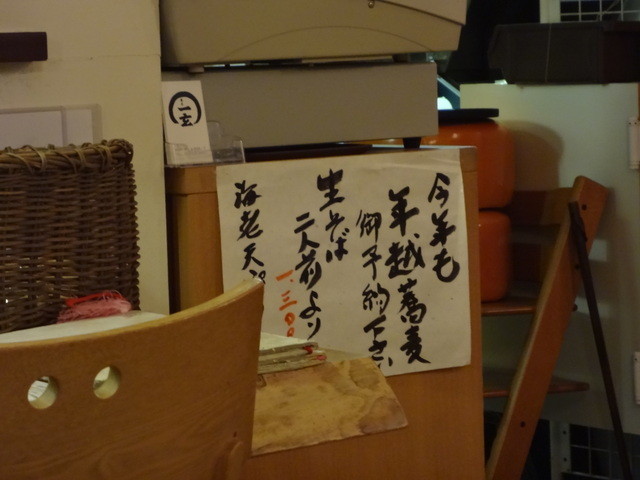 今年も
年越蕎麦
御予約下さい
生そば
二人前より
一、三〇〇
海老天
一玄